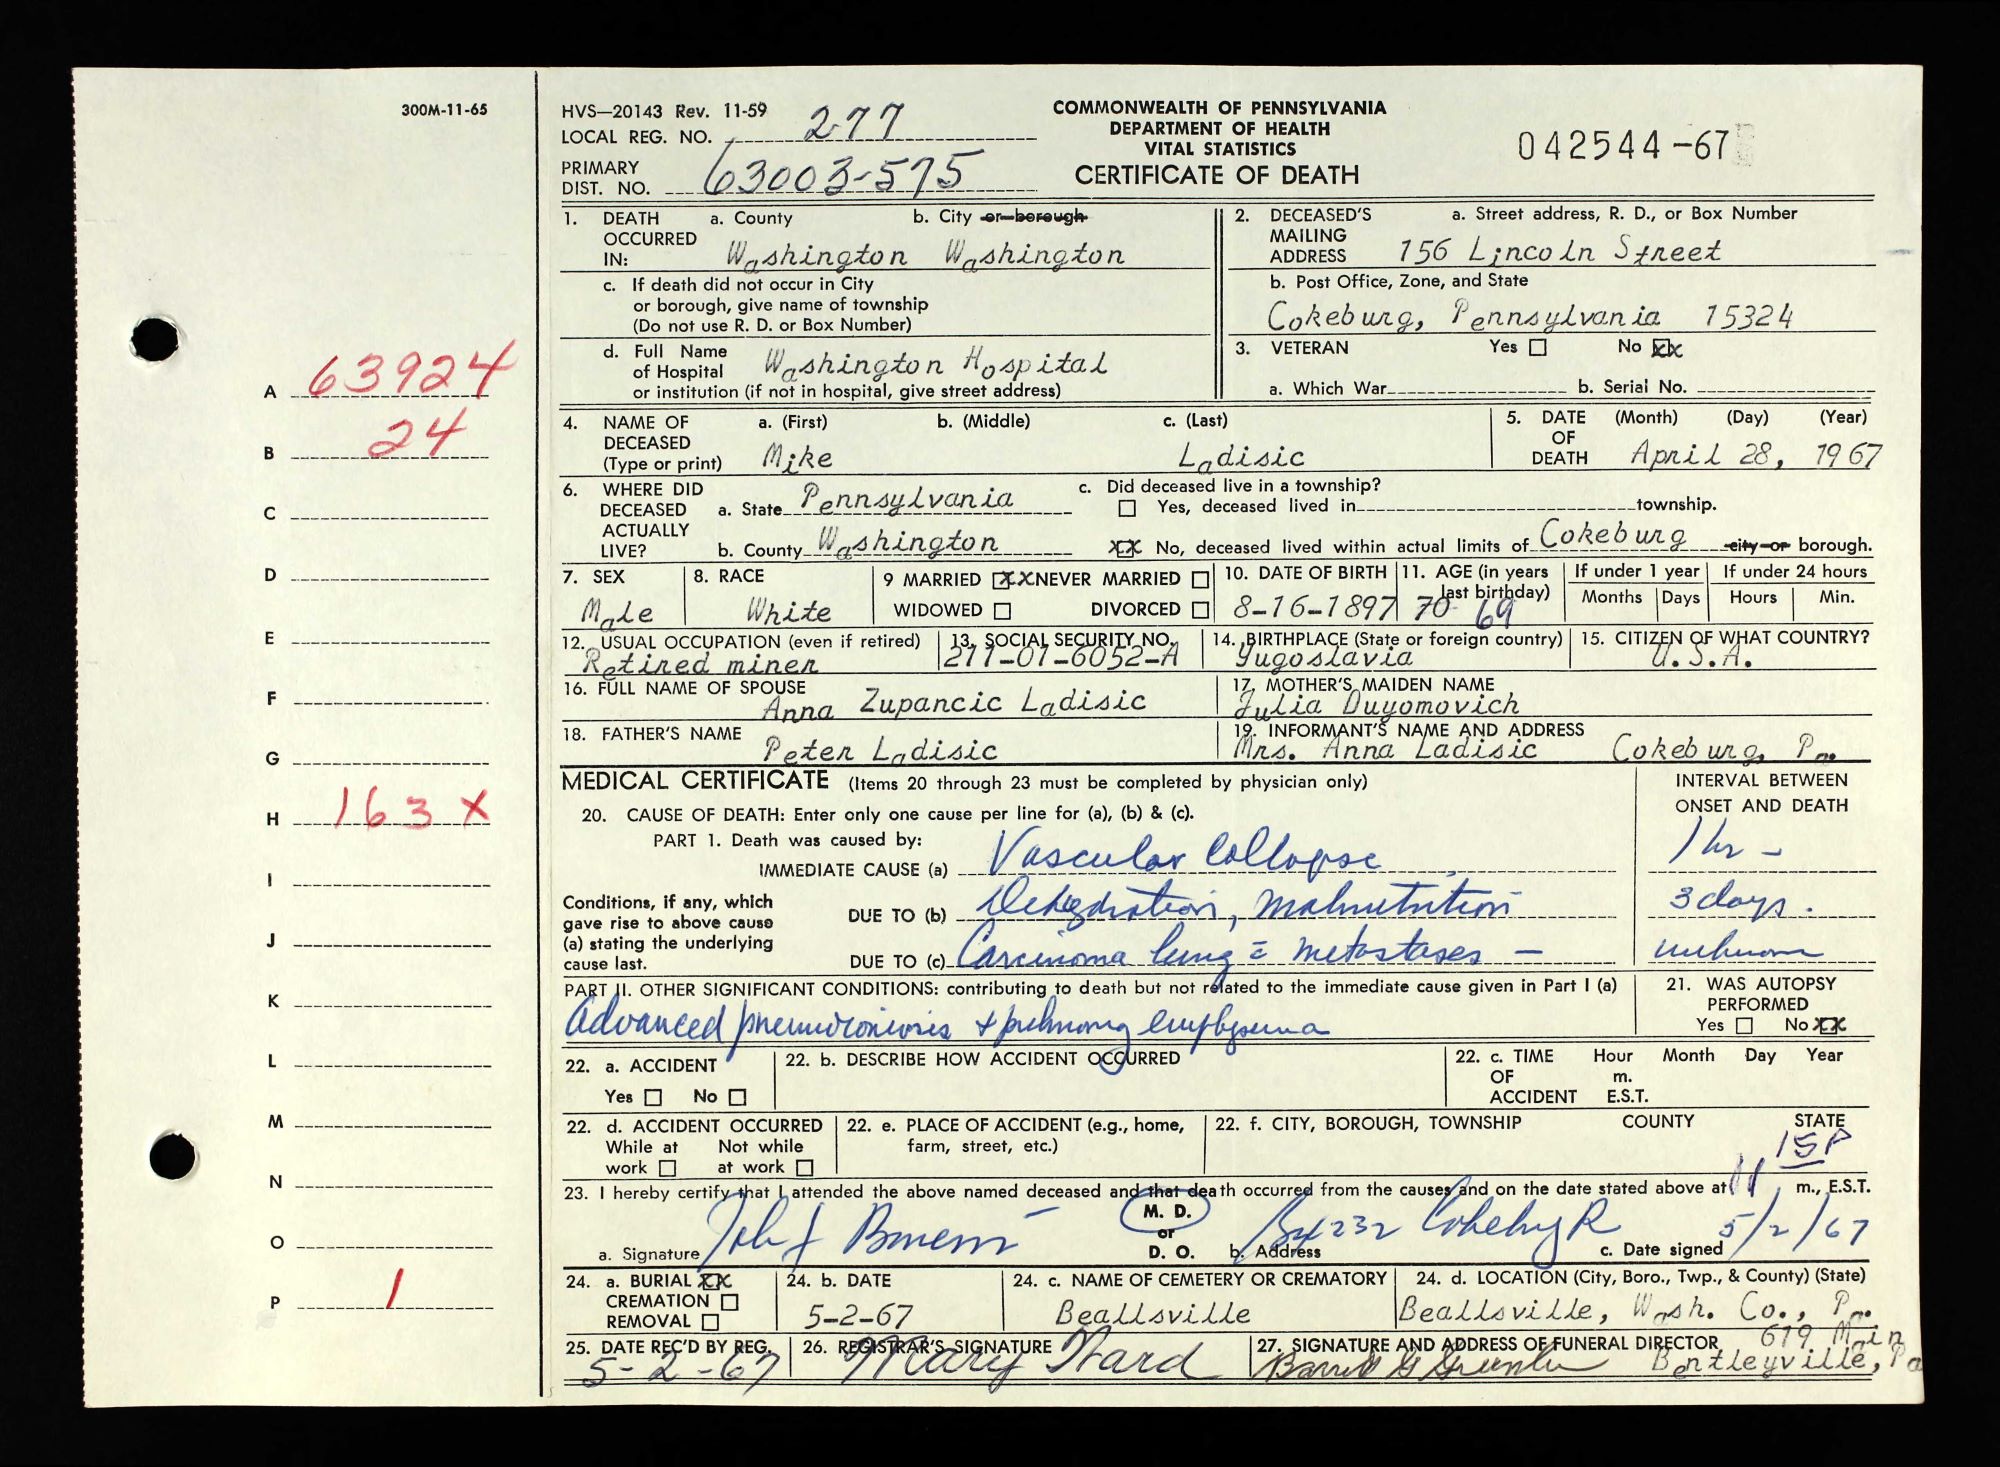 300M-11-65
A 63924
B 24
C
D
E
F
G
H 163 X
I
J
K
L
M
N
O
P 1
HVS—20143 Rev. 11-59
LOCAL REG. NO. 277
PRIMARY
DIST. NO. 63003-575
COMMONWEALTH OF PENNSYLVANIA
DEPARTMENT OF HEALTH
VITAL STATISTICS
CERTIFICATE OF DEATH
042544-67
1. DEATH OCCURRED IN: a. County b. City or borough
Washington Washington
c. If death did not occur in City
or borough, give name of township
(Do not use R. D. or Box Number)
d. Full Name
of Hospital Washington Hospital
or institution (if not in hospital, give street address)
2. DECEASED'S MAILING ADDRESS a. Street address, R. D., or Box Number
156 Lincoln Street
b. Post Office, Zone, and State
Cokeburg, Pennsylvania 15324
3. VETERAN Yes No XX
a. Which War b. Serial No.
4. NAME OF DECEASED (Type or print) a. (First) b. (Middle) c. (Last)
Mike Ladisic
5. DATE OF DEATH (Month) (Day) (Year)
April 28, 1967
6. WHERE DID DECEASED ACTUALLY LIVE? a. State Pennsylvania
b. County Washington
c. Did deceased live in a township?
Yes, deceased lived in township.
XX No, deceased lived within actual limits of Cokeburg city or borough.
7. SEX
Male
8. RACE
White
9 MARRIED XX NEVER MARRIED
WIDOWED DIVORCED
10. DATE OF BIRTH
8-16-1897
11. AGE (in years last birthday)
70 69
If under 1 year
Months Days
If under 24 hours
Hours Min.
12. USUAL OCCUPATION (even if retired)
Retired miner
13. SOCIAL SECURITY NO.
211-01-6052-A
14. BIRTHPLACE (State or foreign country)
Yugoslavia
15. CITIZEN OF WHAT COUNTRY?
U.S.A.
16. FULL NAME OF SPOUSE
Anna Zupancic Ladisic
17. MOTHER'S MAIDEN NAME
Julia Duyomovich
18. FATHER'S NAME
Peter Ladisic
19. INFORMANT'S NAME AND ADDRESS
Mrs. Anna Ladisic Cokeburg, Pa.
MEDICAL CERTIFICATE (Items 20 through 23 must be completed by physician only)
INTERVAL BETWEEN
ONSET AND DEATH
20. CAUSE OF DEATH: Enter only one cause per line for (a), (b) & (c).
PART 1. Death was caused by:
IMMEDIATE CAUSE (a) Vascular Collapse 1 hr -
Conditions, if any, which
gave rise to above cause
(a) stating the underlying
cause last.
DUE TO (b) Dehydration, malnutrition 3 days.
DUE TO (c) Carcinoma lung c̄ metastases — unknown
PART II. OTHER SIGNIFICANT CONDITIONS: contributing to death but not related to the immediate cause given in Part I (a)
Advanced pneumoconiosis + pulmonary emphysema
21. WAS AUTOPSY
PERFORMED
Yes No XX
22. a. ACCIDENT
Yes No
22. b. DESCRIBE HOW ACCIDENT OCCURRED
22. c. TIME OF ACCIDENT Hour Month Day Year
m.
E.S.T.
22. d. ACCIDENT OCCURRED
While at work Not while at work
22. e. PLACE OF ACCIDENT (e.g., home,
farm, street, etc.)
22. f. CITY, BOROUGH, TOWNSHIP COUNTY STATE
23. I hereby certify that I attended the above named deceased and that death occurred from the causes and on the date stated above at 11 15P m., E.S.T.
a. Signature John J
M. D.
or
D. O.
b. Address Bx 232 Cokeburg
c. Date signed 5/2/67
24. a. BURIAL XX
CREMATION
REMOVAL
24. b. DATE
5-2-67
24. c. NAME OF CEMETERY OR CREMATORY
Beallsville
24. d. LOCATION (City, Boro., Twp., & County) (State)
Beallsville, Wash. Co., Pa.
25. DATE REC'D BY REG.
5-2-67
26. REGISTRAR'S SIGNATURE
Mary Ward
27. SIGNATURE AND ADDRESS OF FUNERAL DIRECTOR
619 Main
Bentleyville, Pa